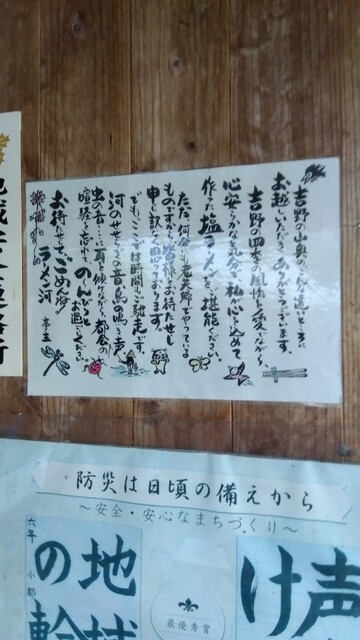 吉野の山奥の遠いところに
お越しいただきありがとうございます。
吉野の四季の風情を愛でながら、
心安らかな気分で私が心を込めて
作った塩ラーメンをご堪能ください。
ただ、何分にも老夫婦でやっている
ものですから皆様をお待たせし
申し訳なく思っております。
でも、ここでは時間もご馳走です。
河のせせらぎの音、鳥の鳴く声、
虫の音…に耳を傾けながら、都会の
喧騒を忘れて、のんびりとお過ごしください。
お待たせしてごめんなさい
ラーメン河 亭主
防災は日頃の備えから
〜安全・安心なまちづくり〜
声
け
最優秀賞
地域
の輪
六年